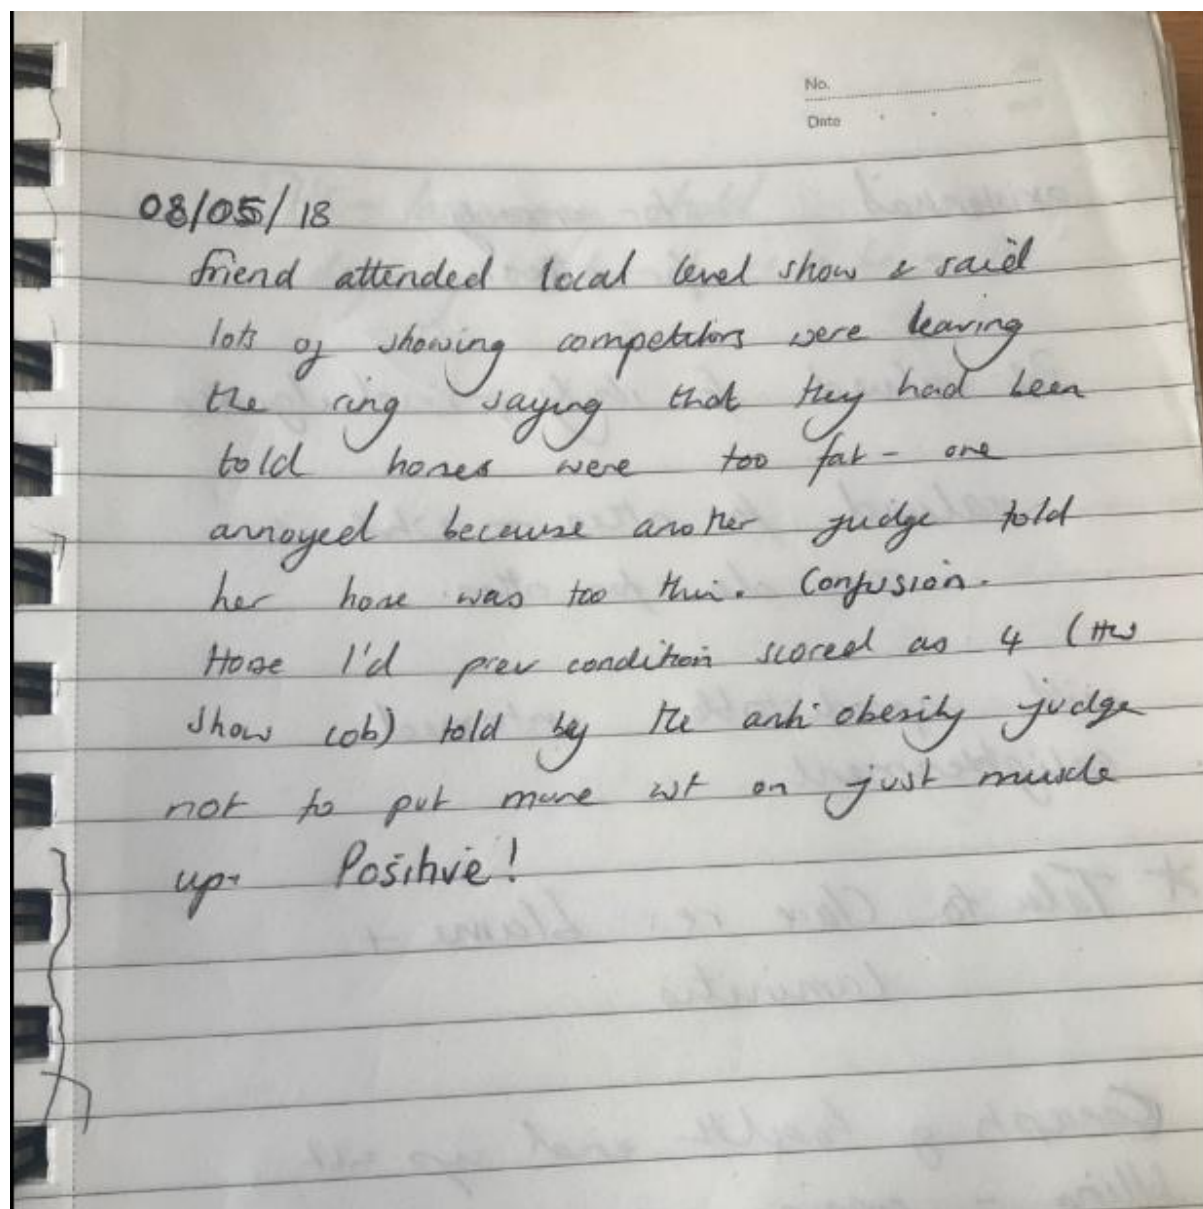 No.
Date
08/05/18
friend attended local level show & said
lots of showing competitors were leaving
the ring saying that they had been
told horses were too fat - one
annoyed because another judge told
her horse was too thin. Confusion.
Horse I'd prev condition scored as 4 (HW
show cob) told by the anti obesity judge
not to put more wt on just muscle
up. Positive!